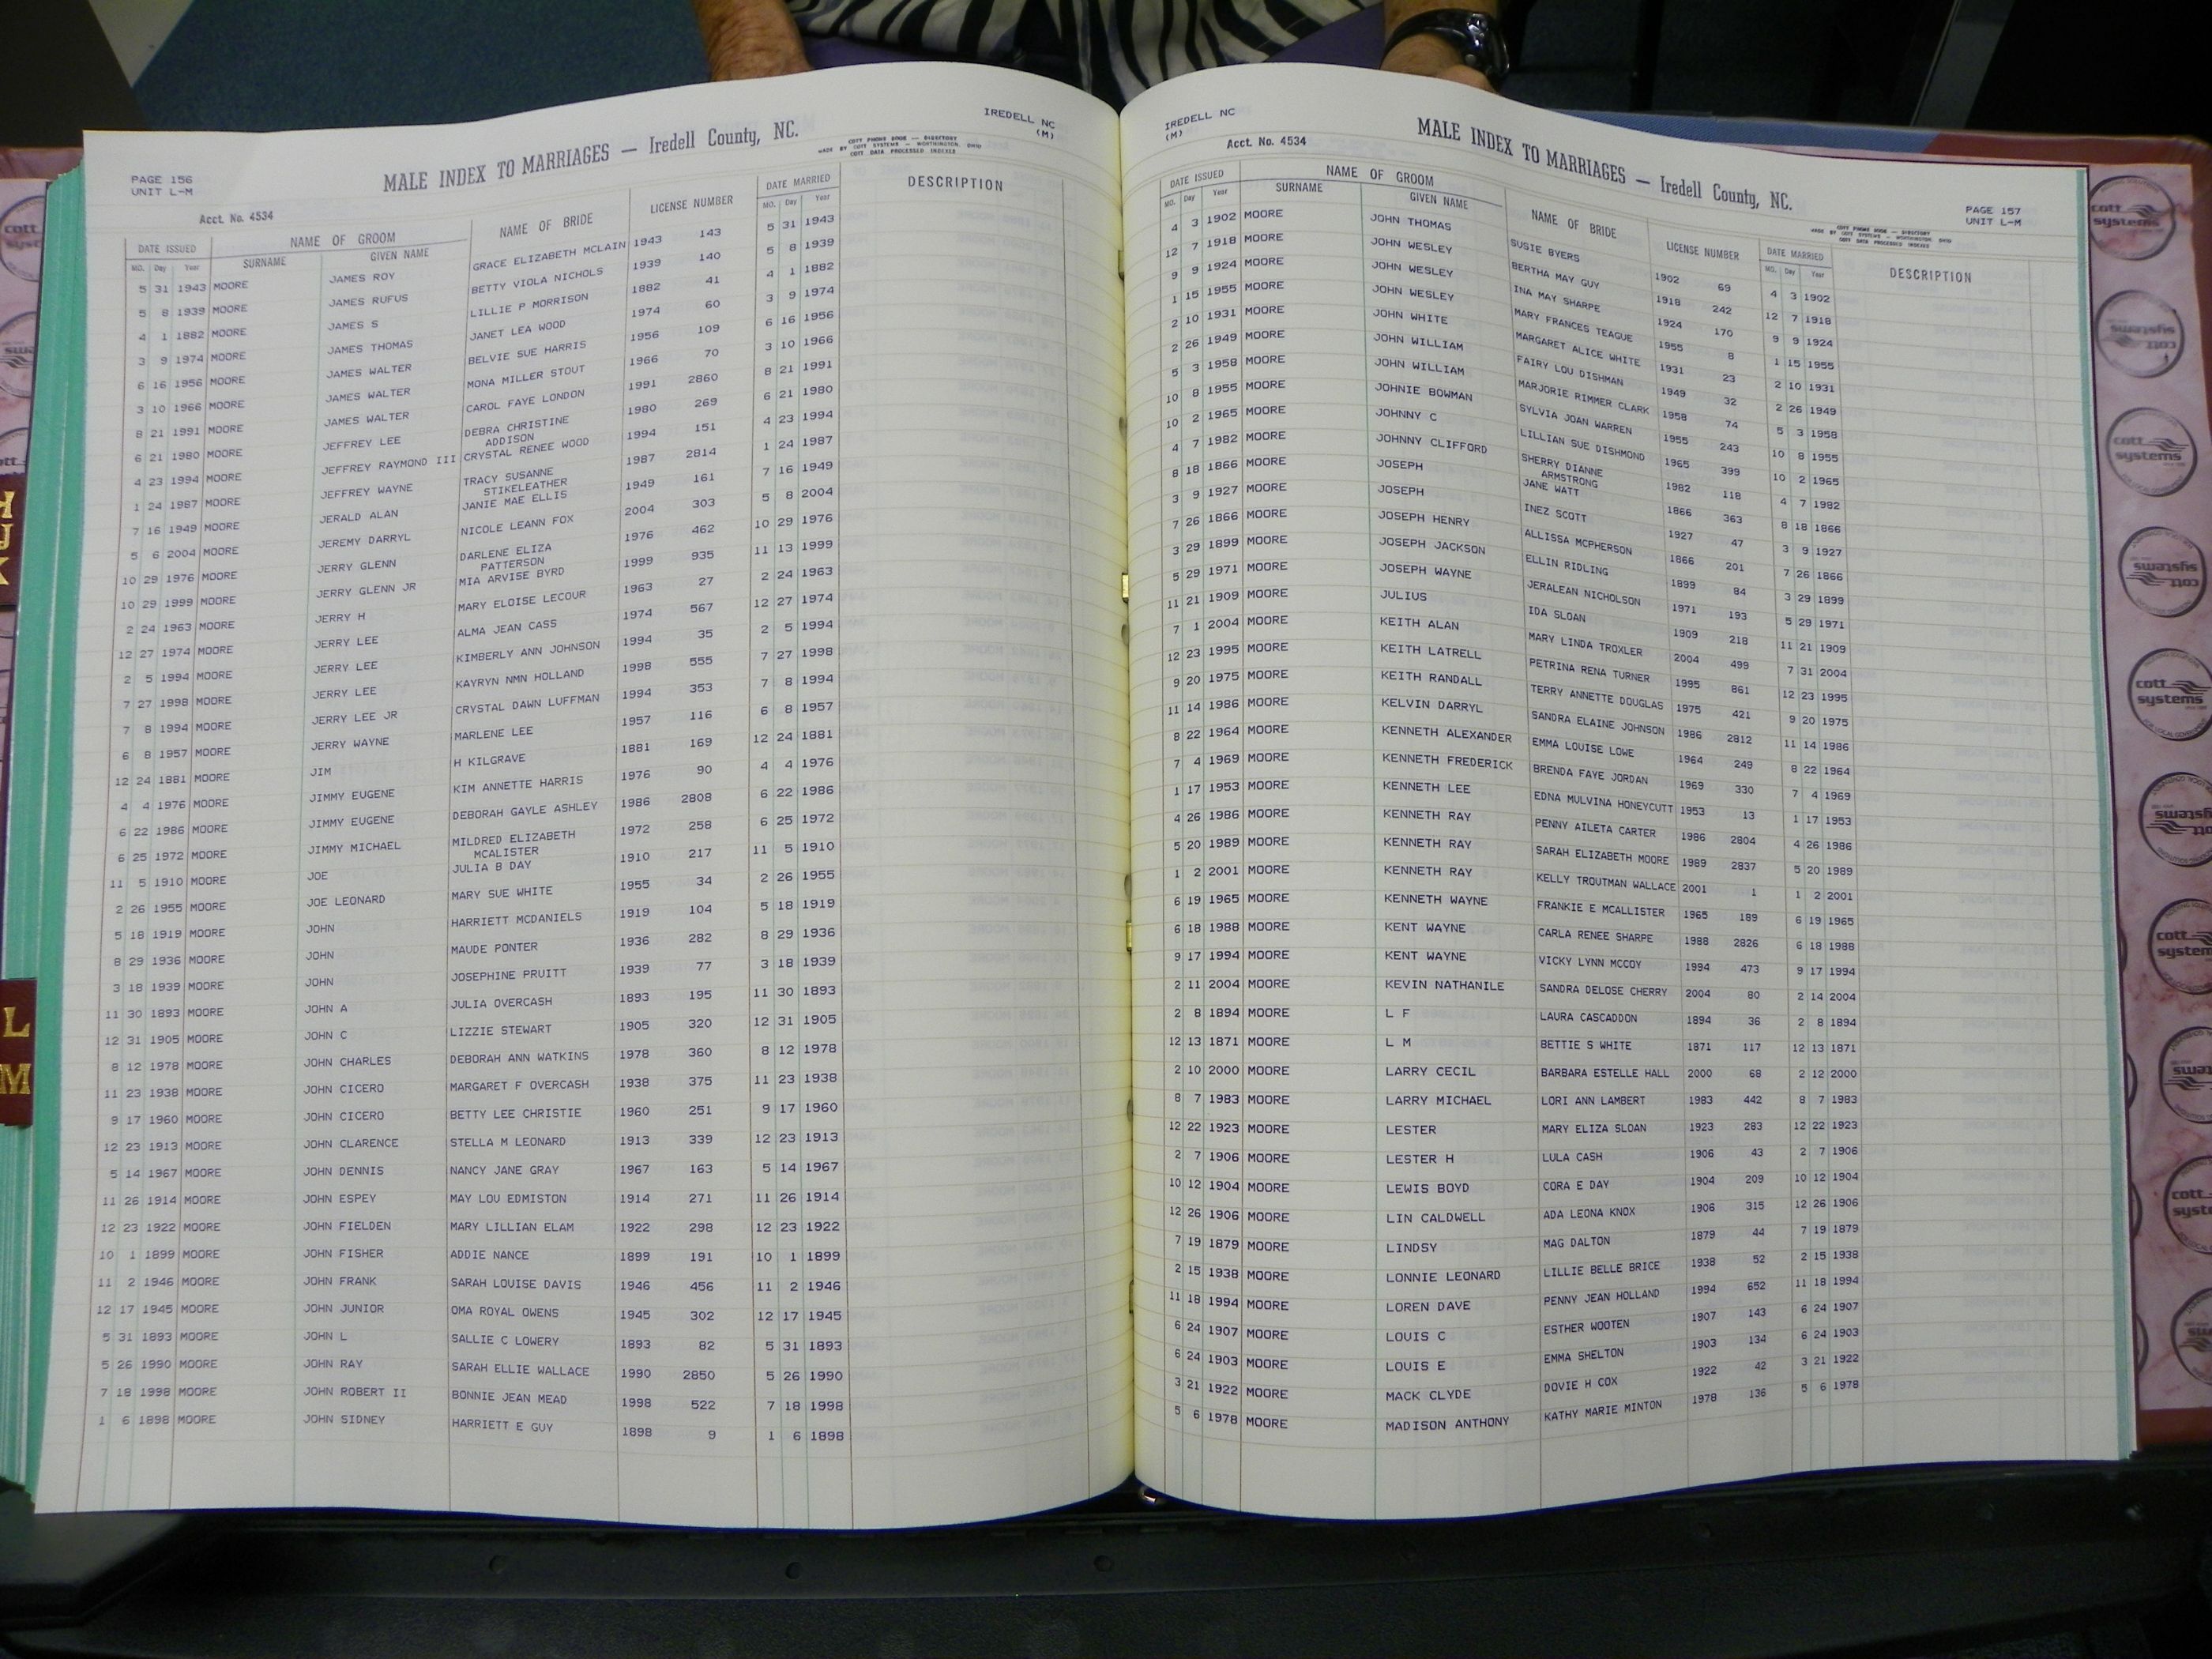 IREDELL NC
(M)
MALE INDEX TO MARRIAGES — Iredell County, NC.
COTT PHONE BOOK — DIRECTORY
MADE BY COTT SYSTEMS — WORTHINGTON, OHIO
COTT DATA PROCESSED INDEXES
PAGE 156
UNIT L-M
Acct. No. 4534
DATE ISSUED NAME OF GROOM NAME OF BRIDE LICENSE NUMBER DATE MARRIED DESCRIPTION
MO. Day Year SURNAME GIVEN NAME MO. Day Year
5 31 1943 MOORE JAMES ROY GRACE ELIZABETH MCLAIN 1943 143 5 31 1943
5 8 1939 MOORE JAMES RUFUS BETTY VIOLA NICHOLS 1939 140 5 8 1939
4 1 1882 MOORE JAMES S LILLIE P MORRISON 1882 41 4 1 1882
3 9 1974 MOORE JAMES THOMAS JANET LEA WOOD 1974 60 3 9 1974
6 16 1956 MOORE JAMES WALTER BELVIE SUE HARRIS 1956 109 6 16 1956
3 10 1966 MOORE JAMES WALTER MONA MILLER STOUT 1966 70 3 10 1966
8 21 1991 MOORE JAMES WALTER CAROL FAYE LONDON 1991 2860 8 21 1991
6 21 1980 MOORE JEFFREY LEE DEBRA CHRISTINE 1980 269 6 21 1980
ADDISON
4 23 1994 MOORE JEFFREY RAYMOND III CRYSTAL RENEE WOOD 1994 151 4 23 1994
1 24 1987 MOORE JEFFREY WAYNE TRACY SUSANNE 1987 2814 1 24 1987
STIKELEATHER
7 16 1949 MOORE JERALD ALAN JANIE MAE ELLIS 1949 161 7 16 1949
5 6 2004 MOORE JEREMY DARRYL NICOLE LEANN FOX 2004 303 5 8 2004
10 29 1976 MOORE JERRY GLENN DARLENE ELIZA 1976 462 10 29 1976
PATTERSON
10 29 1999 MOORE JERRY GLENN JR MIA ARVISE BYRD 1999 935 11 13 1999
2 24 1963 MOORE JERRY H MARY ELOISE LECOUR 1963 27 2 24 1963
12 27 1974 MOORE JERRY LEE ALMA JEAN CASS 1974 567 12 27 1974
2 5 1994 MOORE JERRY LEE KIMBERLY ANN JOHNSON 1994 35 2 5 1994
7 27 1998 MOORE JERRY LEE KAYRYN NMN HOLLAND 1998 555 7 27 1998
7 8 1994 MOORE JERRY LEE JR CRYSTAL DAWN LUFFMAN 1994 353 7 8 1994
6 8 1957 MOORE JERRY WAYNE MARLENE LEE 1957 116 6 8 1957
12 24 1881 MOORE JIM H KILGRAVE 1881 169 12 24 1881
4 4 1976 MOORE JIMMY EUGENE KIM ANNETTE HARRIS 1976 90 4 4 1976
6 22 1986 MOORE JIMMY EUGENE DEBORAH GAYLE ASHLEY 1986 2808 6 22 1986
6 25 1972 MOORE JIMMY MICHAEL MILDRED ELIZABETH 1972 258 6 25 1972
MCALISTER
11 5 1910 MOORE JOE JULIA B DAY 1910 217 11 5 1910
2 26 1955 MOORE JOE LEONARD MARY SUE WHITE 1955 34 2 26 1955
5 18 1919 MOORE JOHN HARRIETT MCDANIELS 1919 104 5 18 1919
8 29 1936 MOORE JOHN MAUDE PONTER 1936 282 8 29 1936
3 18 1939 MOORE JOHN JOSEPHINE PRUITT 1939 77 3 18 1939
11 30 1893 MOORE JOHN A JULIA OVERCASH 1893 195 11 30 1893
12 31 1905 MOORE JOHN C LIZZIE STEWART 1905 320 12 31 1905
8 12 1978 MOORE JOHN CHARLES DEBORAH ANN WATKINS 1978 360 8 12 1978
11 23 1938 MOORE JOHN CICERO MARGARET F OVERCASH 1938 375 11 23 1938
9 17 1960 MOORE JOHN CICERO BETTY LEE CHRISTIE 1960 251 9 17 1960
12 23 1913 MOORE JOHN CLARENCE STELLA M LEONARD 1913 339 12 23 1913
5 14 1967 MOORE JOHN DENNIS NANCY JANE GRAY 1967 163 5 14 1967
11 26 1914 MOORE JOHN ESPEY MAY LOU EDMISTON 1914 271 11 26 1914
12 23 1922 MOORE JOHN FIELDEN MARY LILLIAN ELAM 1922 298 12 23 1922
10 1 1899 MOORE JOHN FISHER ADDIE NANCE 1899 191 10 1 1899
11 2 1946 MOORE JOHN FRANK SARAH LOUISE DAVIS 1946 456 11 2 1946
12 17 1945 MOORE JOHN JUNIOR OMA ROYAL OWENS 1945 302 12 17 1945
5 31 1893 MOORE JOHN L SALLIE C LOWERY 1893 82 5 31 1893
5 26 1990 MOORE JOHN RAY SARAH ELLIE WALLACE 1990 2850 5 26 1990
7 18 1998 MOORE JOHN ROBERT II BONNIE JEAN MEAD 1998 522 7 18 1998
1 6 1898 MOORE JOHN SIDNEY HARRIETT E GUY 1898 9 1 6 1898
IREDELL NC
(M)
MALE INDEX TO MARRIAGES — Iredell County, NC.
Acct. No. 4534
PAGE 157
UNIT L-M
COTT PHONE BOOK — DIRECTORY
MADE BY COTT SYSTEMS — WORTHINGTON, OHIO
COTT DATA PROCESSED INDEXES
DATE ISSUED NAME OF GROOM NAME OF BRIDE LICENSE NUMBER DATE MARRIED DESCRIPTION
MO. Day Year SURNAME GIVEN NAME MO. Day Year
4 3 1902 MOORE JOHN THOMAS SUSIE BYERS 1902 69 4 3 1902
12 7 1918 MOORE JOHN WESLEY BERTHA MAY GUY 1918 242 12 7 1918
9 9 1924 MOORE JOHN WESLEY INA MAY SHARPE 1924 170 9 9 1924
1 15 1955 MOORE JOHN WESLEY MARY FRANCES TEAGUE 1955 8 1 15 1955
2 10 1931 MOORE JOHN WHITE MARGARET ALICE WHITE 1931 23 2 10 1931
2 26 1949 MOORE JOHN WILLIAM FAIRY LOU DISHMAN 1949 32 2 26 1949
5 3 1958 MOORE JOHN WILLIAM MARJORIE RIMMER CLARK 1958 74 5 3 1958
10 8 1955 MOORE JOHNIE BOWMAN SYLVIA JOAN WARREN 1955 243 10 8 1955
10 2 1965 MOORE JOHNNY C LILLIAN SUE DISHMOND 1965 399 10 2 1965
4 7 1982 MOORE JOHNNY CLIFFORD SHERRY DIANNE 1982 118 4 7 1982
ARMSTRONG
8 18 1866 MOORE JOSEPH JANE WATT 1866 363 8 18 1866
3 9 1927 MOORE JOSEPH INEZ SCOTT 1927 47 3 9 1927
7 26 1866 MOORE JOSEPH HENRY ALLISSA MCPHERSON 1866 201 7 26 1866
3 29 1899 MOORE JOSEPH JACKSON ELLIN RIDLING 1899 84 3 29 1899
5 29 1971 MOORE JOSEPH WAYNE JERALEAN NICHOLSON 1971 193 5 29 1971
11 21 1909 MOORE JULIUS IDA SLOAN 1909 218 11 21 1909
7 1 2004 MOORE KEITH ALAN MARY LINDA TROXLER 2004 499 7 31 2004
12 23 1995 MOORE KEITH LATRELL PETRINA RENA TURNER 1995 861 12 23 1995
9 20 1975 MOORE KEITH RANDALL TERRY ANNETTE DOUGLAS 1975 421 9 20 1975
11 14 1986 MOORE KELVIN DARRYL SANDRA ELAINE JOHNSON 1986 2812 11 14 1986
8 22 1964 MOORE KENNETH ALEXANDER EMMA LOUISE LOWE 1964 249 8 22 1964
7 4 1969 MOORE KENNETH FREDERICK BRENDA FAYE JORDAN 1969 330 7 4 1969
1 17 1953 MOORE KENNETH LEE EDNA MULVINA HONEYCUTT 1953 13 1 17 1953
4 26 1986 MOORE KENNETH RAY PENNY AILETA CARTER 1986 2804 4 26 1986
5 20 1989 MOORE KENNETH RAY SARAH ELIZABETH MOORE 1989 2837 5 20 1989
1 2 2001 MOORE KENNETH RAY KELLY TROUTMAN WALLACE 2001 1 1 2 2001
6 19 1965 MOORE KENNETH WAYNE FRANKIE E MCALLISTER 1965 189 6 19 1965
6 18 1988 MOORE KENT WAYNE CARLA RENEE SHARPE 1988 2826 6 18 1988
9 17 1994 MOORE KENT WAYNE VICKY LYNN MCCOY 1994 473 9 17 1994
2 11 2004 MOORE KEVIN NATHANILE SANDRA DELOSE CHERRY 2004 80 2 14 2004
2 8 1894 MOORE L F LAURA CASCADDON 1894 36 2 8 1894
12 13 1871 MOORE L M BETTIE S WHITE 1871 117 12 13 1871
2 10 2000 MOORE LARRY CECIL BARBARA ESTELLE HALL 2000 68 2 12 2000
8 7 1983 MOORE LARRY MICHAEL LORI ANN LAMBERT 1983 442 8 7 1983
12 22 1923 MOORE LESTER MARY ELIZA SLOAN 1923 283 12 22 1923
2 7 1906 MOORE LESTER H LULA CASH 1906 43 2 7 1906
10 12 1904 MOORE LEWIS BOYD CORA E DAY 1904 209 10 12 1904
12 26 1906 MOORE LIN CALDWELL ADA LEONA KNOX 1906 315 12 26 1906
7 19 1879 MOORE LINDSY MAG DALTON 1879 44 7 19 1879
2 15 1938 MOORE LONNIE LEONARD LILLIE BELLE BRICE 1938 52 2 15 1938
11 18 1994 MOORE LOREN DAVE PENNY JEAN HOLLAND 1994 652 11 18 1994
6 24 1907 MOORE LOUIS C ESTHER WOOTEN 1907 143 6 24 1907
6 24 1903 MOORE LOUIS E EMMA SHELTON 1903 134 6 24 1903
3 21 1922 MOORE MACK CLYDE DOVIE H COX 1922 42 3 21 1922
5 6 1978 MOORE MADISON ANTHONY KATHY MARIE MINTON 1978 136 5 6 1978
L
M
cott
systems
cott
systems
cott
systems